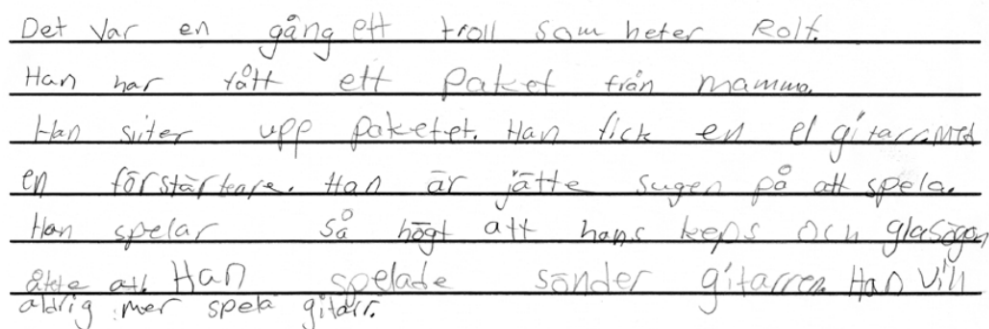 Det var en gång ett troll som heter Rolf.
Han har fått ett paket från mamma.
Han sliter upp paketet. Han fick en el gitarr. med
en förstärkare. Han är jätte sugen på att spela.
Han spelar så högt att hans keps och glasögon
åkte att Han spelade sönder gitarren Han vill
aldrig mer spela gitarr.